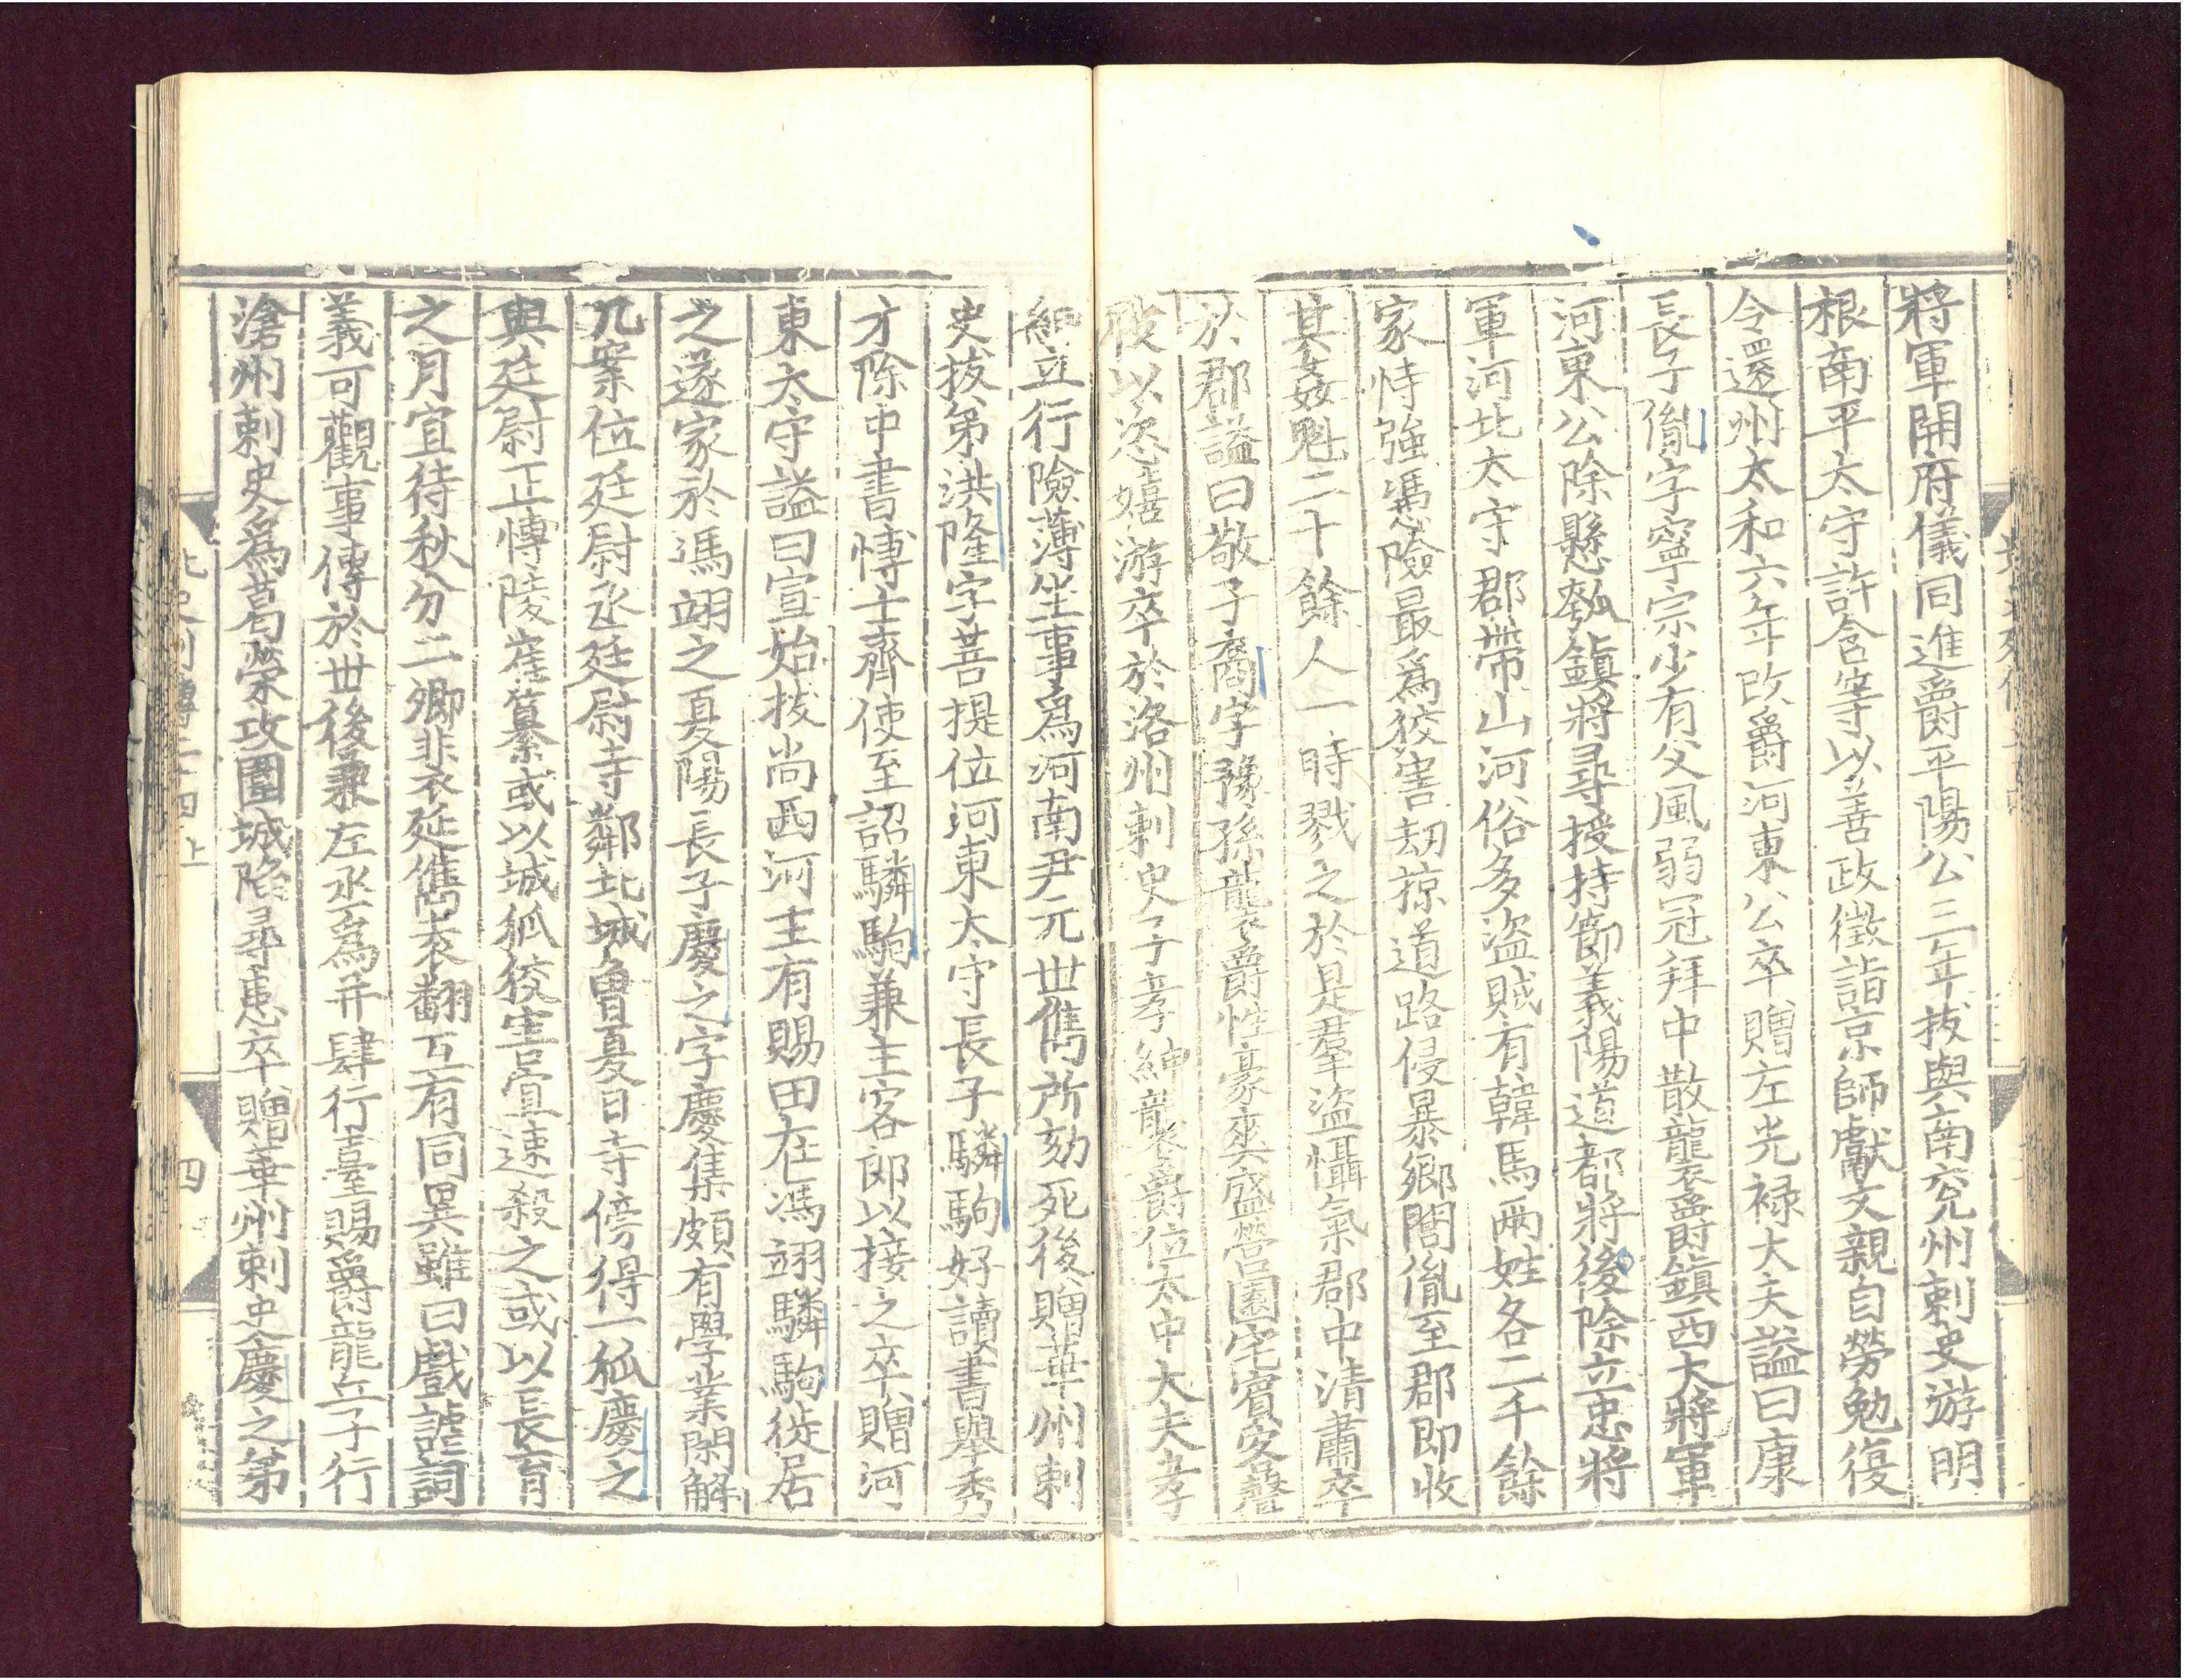 將軍開府儀同進爵平陽公三年拔與南兖州刺史游明
根南平太守許含等以善政徵詣京師獻文親自勞勉復
令還州太和六年改爵河東公卒贈左光祿大夫謚曰康
長子胤字寧宗少有父風弱冠拜中散襲爵鎭西大將軍
河東公除懸瓠鎭將尋授持節義陽道都將後除立忠將
軍河北太守郡帶山河俗多盜賊有韓馬兩姓各二千餘
家恃強馮險最爲狡害劫掠道路侵暴鄉閭胤至郡即收
其姦魁二十餘人一時戮之於是羣盜懾氣郡中清肅卒
於郡謚曰敬子裔字豫孫襲爵性豪爽盛營園宅賓客聲
伎以恣嬉游卒於洛州刺史子孝紳襲爵位太中大夫孝
紳立行險薄坐事爲河南尹元世儁所劾死後贈華州刺
史拔弟洪隆字菩提位河東太守長子驎駒好讀書舉秀
才除中書博士齊使至詔驎駒兼主客郎以接之卒贈河
東太守謚曰宣始拔尚西河主有賜田在馮翊驎駒徙居
之遂家於馮翊之夏陽長子慶之字慶集頗有學業閑解
几案位廷尉丞廷尉寺鄰北城曾夏日寺傍得一狐慶之
與廷尉正博陵崔纂或以城狐狡害宜速殺之或以長育
之月宜待秋分二卿裴延儁袁翻互有同異雖曰戲謔詞
義可觀事傳於世後兼左丞爲并肆行臺賜爵龍丘子行
滄州刺史爲葛榮攻圍城陷尋患卒贈華州刺史慶之弟
北史列傳二十四上
四